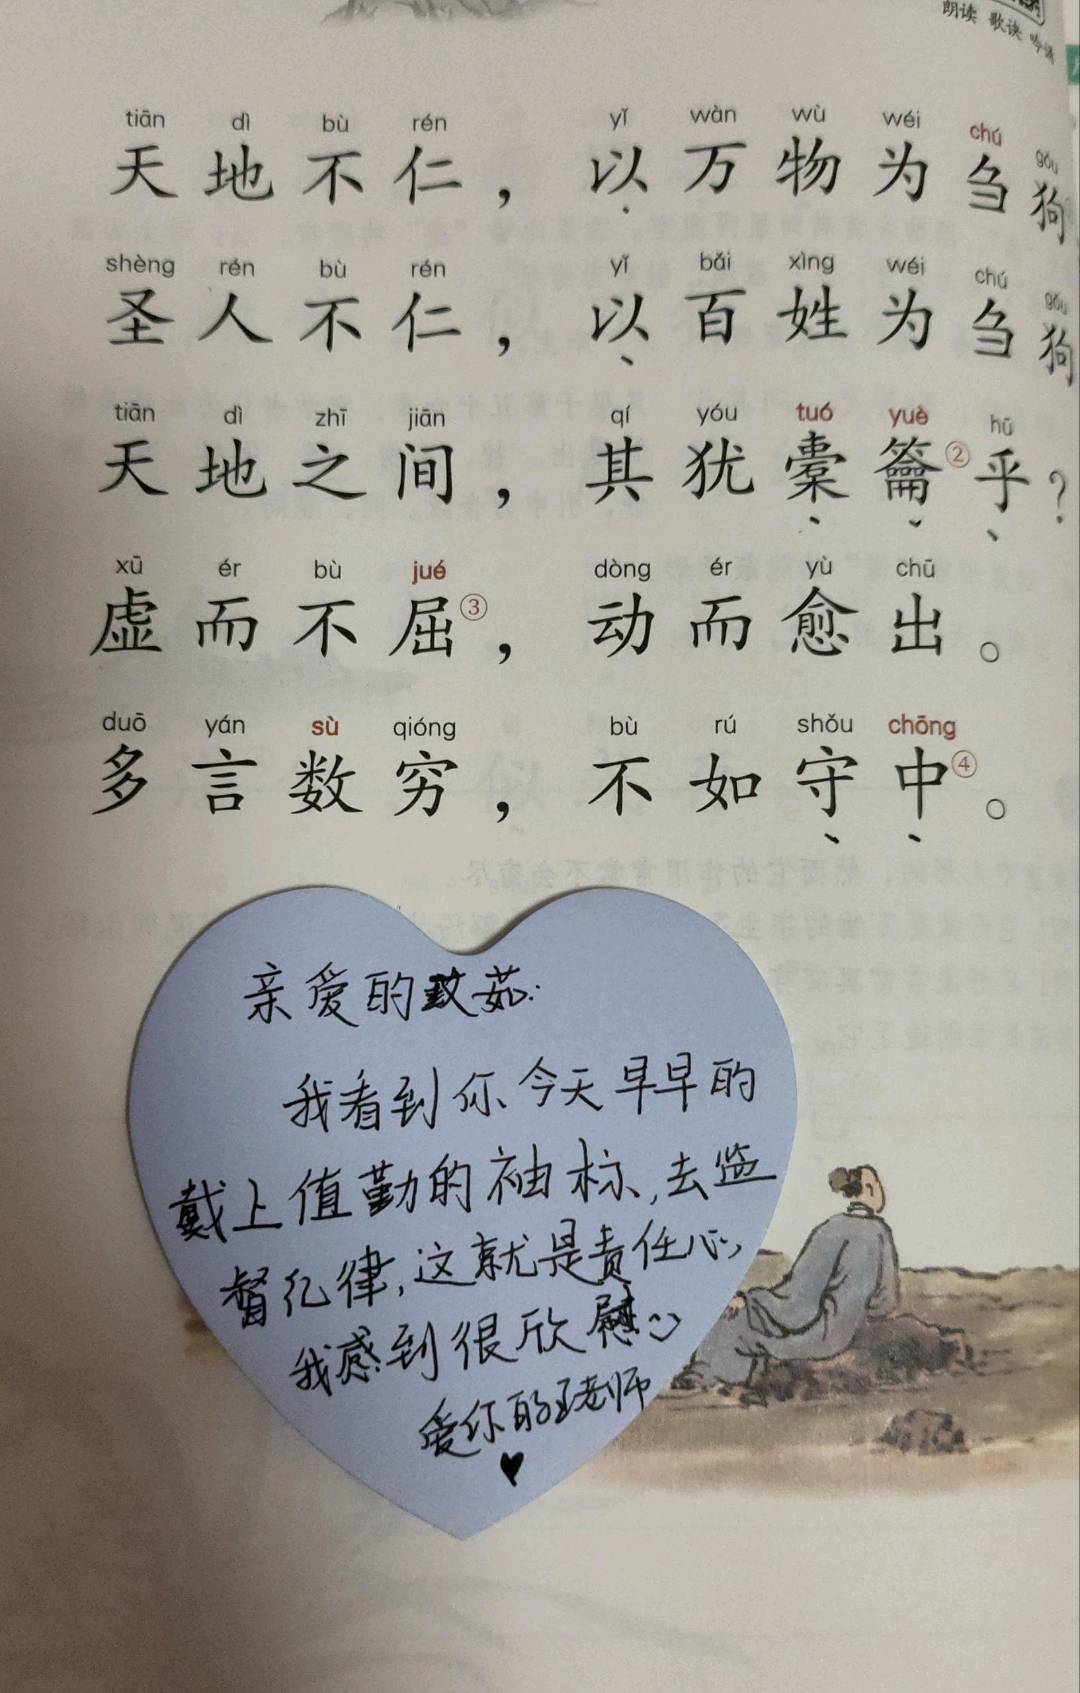 朗读 歌诀 吟诵
tiān dì bù rén yǐ wàn wù wéi chú gǒu
天地不仁，以万物为刍狗
shèng rén bù rén yǐ bǎi xìng wéi chú gǒu
圣人不仁，以百姓为刍狗
tiān dì zhī jiān qí yóu tuó yuè hū
天地之间，其犹橐籥②乎？
xū ér bù jué dòng ér yù chū
虚而不屈③，动而愈出。
duō yán sù qióng bù rú shǒu chōng
多言数穷，不如守中④。
亲爱的玟茹：
我看到你今天早早的
戴上值勤的袖标，去监
督纪律，这就是责任心，
我感到很欣慰
爱你的王老师